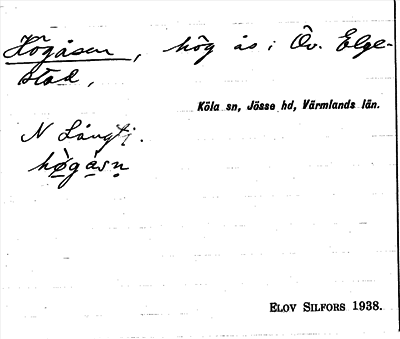 Högåsen, hög ås i Öv. Elge-
stad,
Köla sn, Jösse hd, Värmlands län.
N Långtj.
hø̀gåsn̥
ELOV SILFORS 1938.